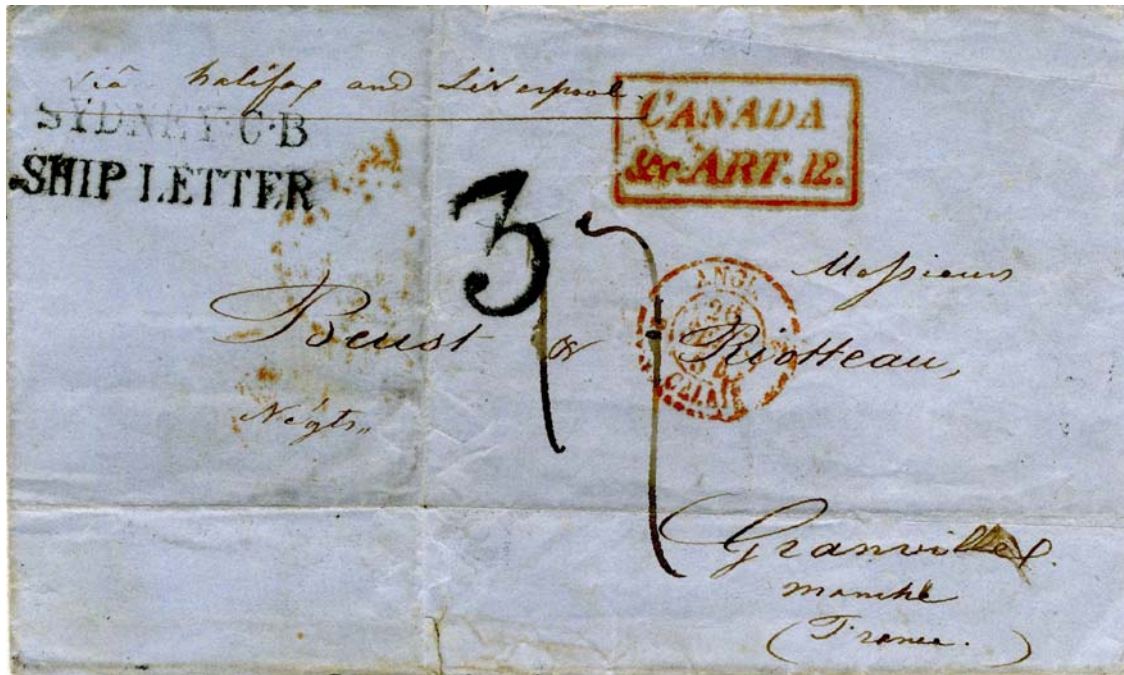 Viâ Halifax and Liverpool.
SYDNEY·C·B
SHIP LETTER
CANADA
&c. ART. 12.
3
ANGL.
26
CALAIS
Messieurs
Beust & Riotteau,
Négts
Granville.
Manche
(France.)